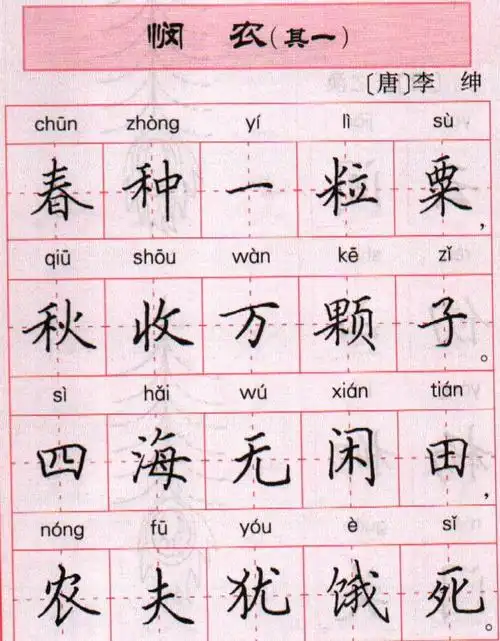 悯 农(其一)
〔唐〕李 绅
chūn zhòng yí lì sù
春种一粒粟，
qiū shōu wàn kē zǐ
秋收万颗子。
sì hǎi wú xián tián
四海无闲田，
nóng fū yóu è sǐ
农夫犹饿死。